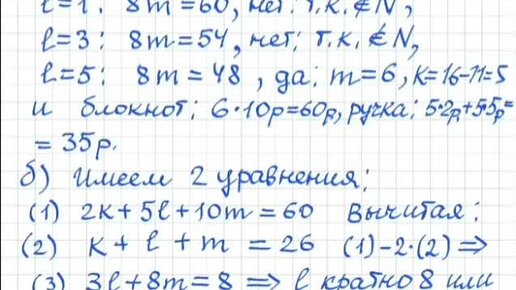 l=1: 8m=60, нет; т.к. ∉N,
l=3: 8m=54, нет; т.к. ∉N,
l=5: 8m=48, да; m=6, k=16-11=5
и блокнот; 6·10р=60р, ручка; 5·2р+5·5р=
=35р.
б) Имеем 2 уравнения;
(1) 2k+5l+10m=60 Вычитая;
(2) k+l+m=26 (1)-2·(2) ⇒
(3) 3l+8m=8 ⇒ l кратно 8 или